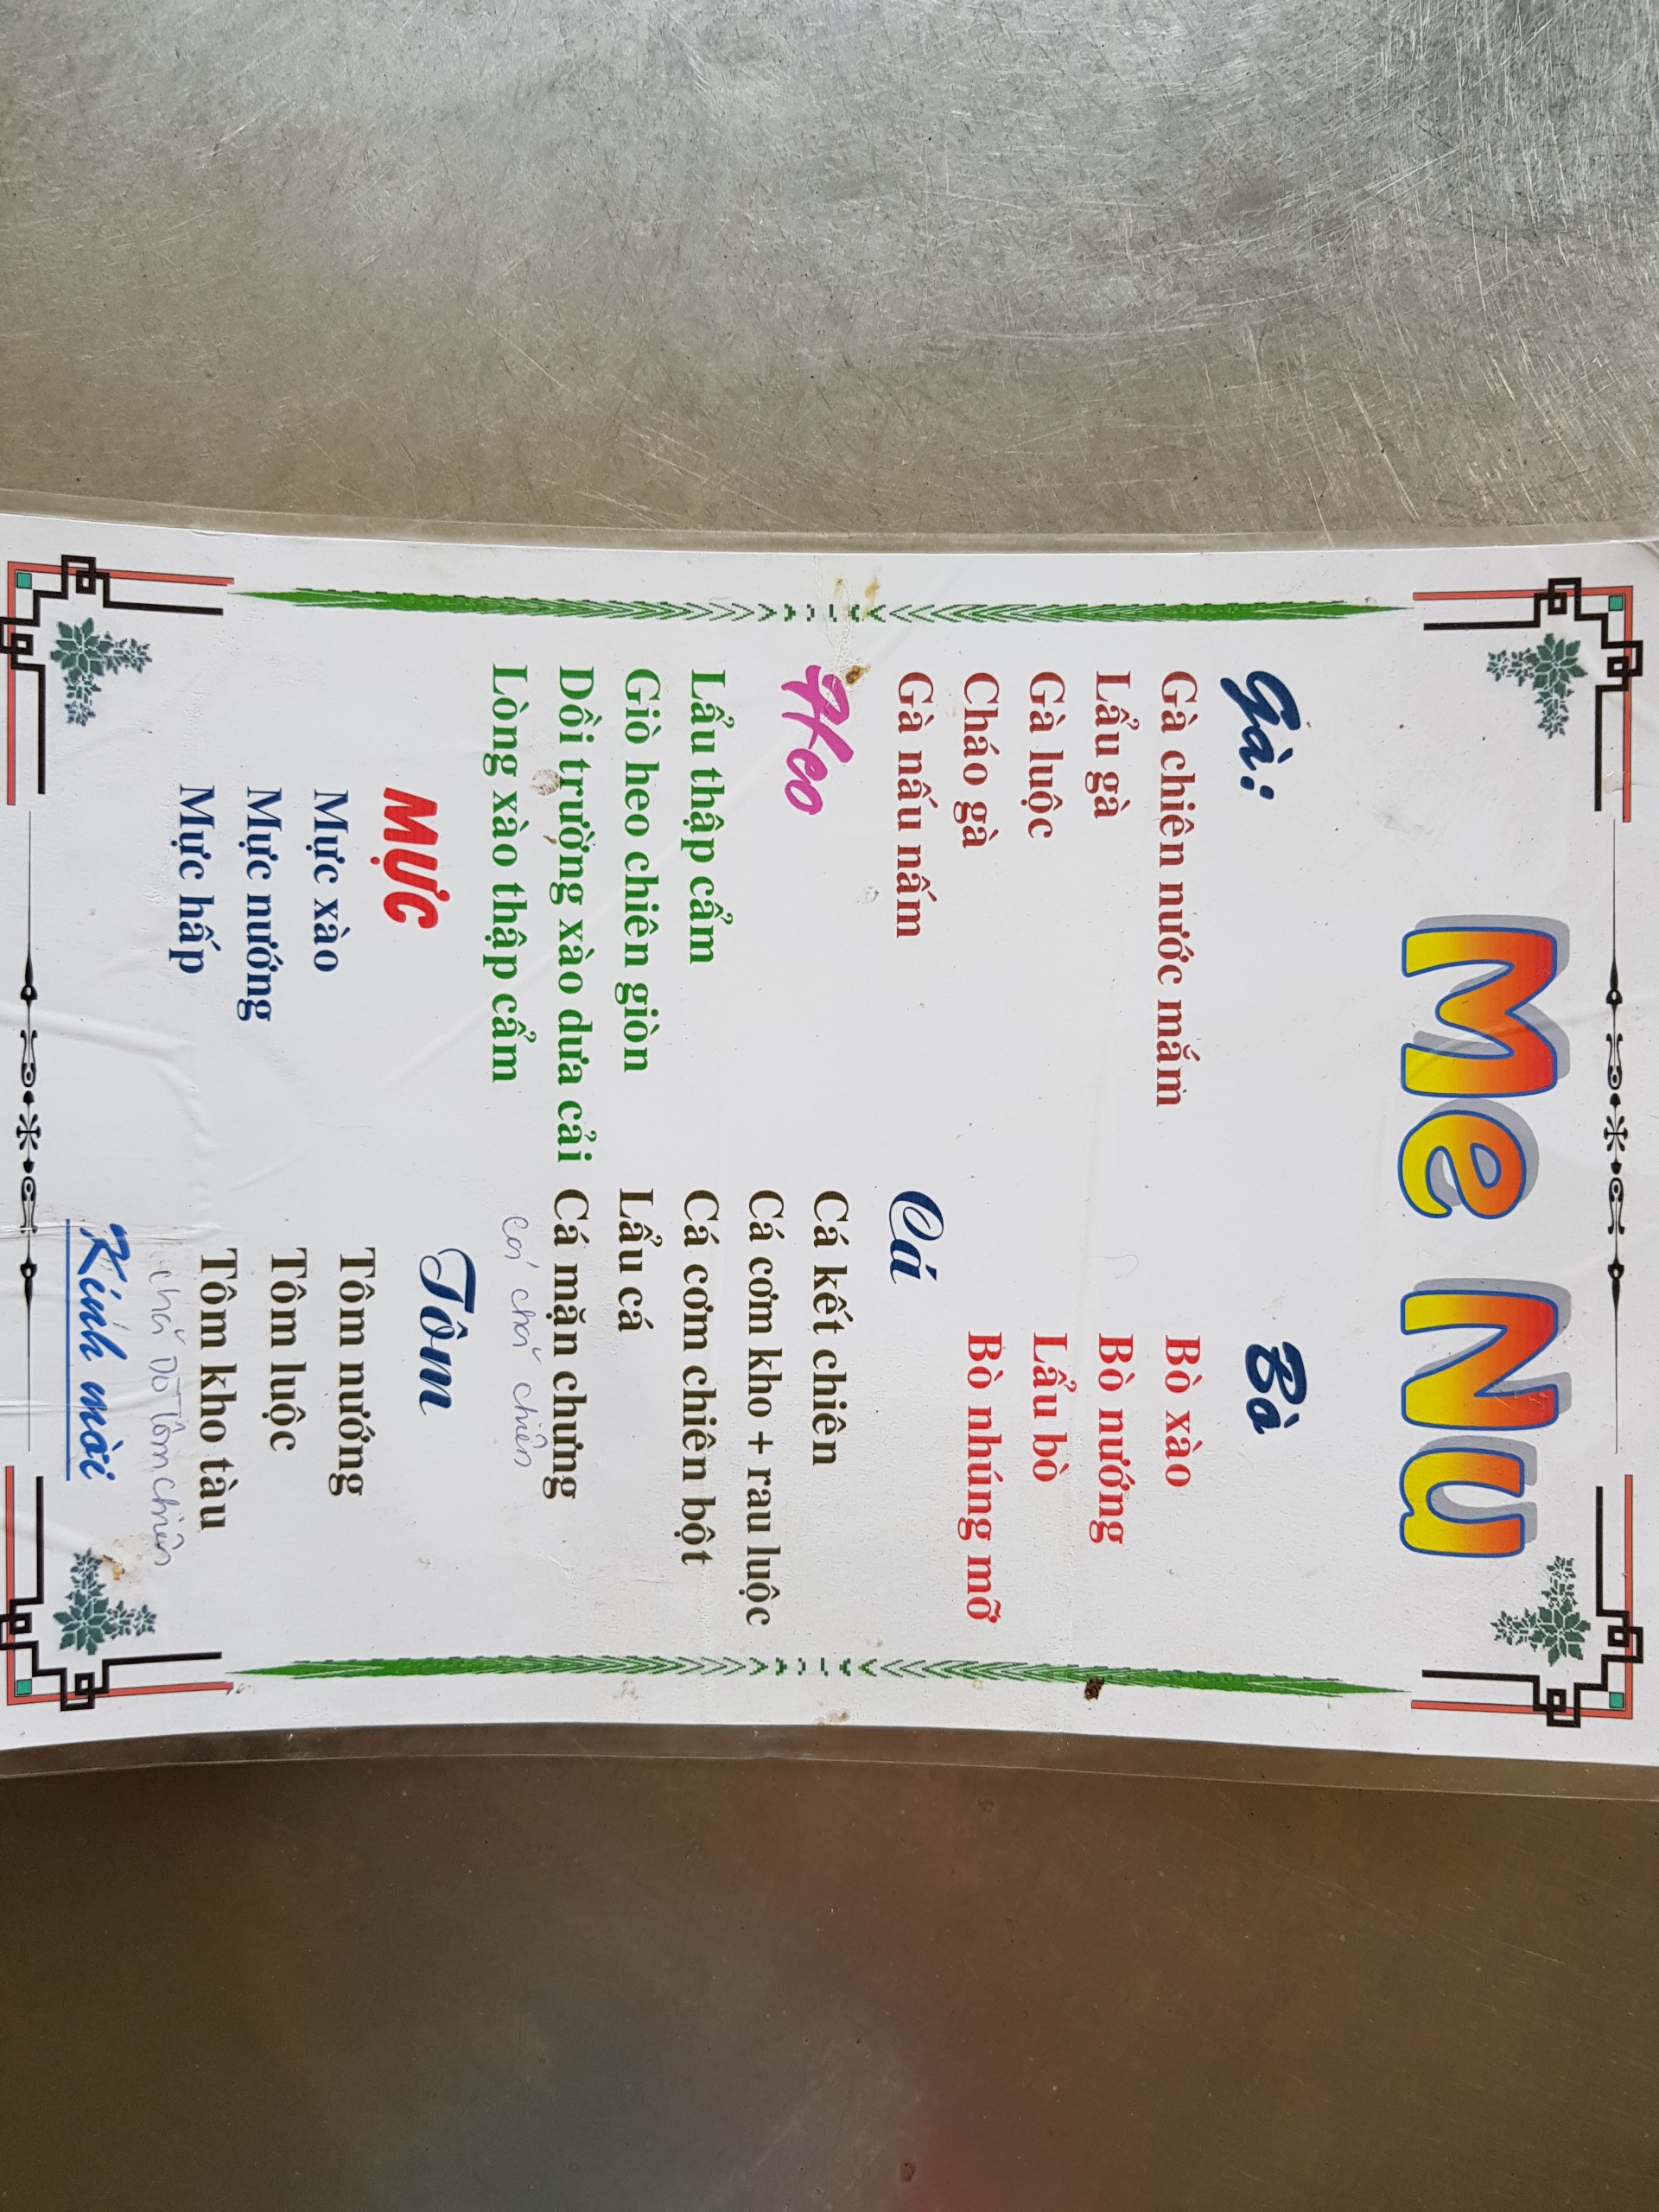 Me Nu
Gà:
Gà chiên nước mắm
Lẩu gà
Gà luộc
Cháo gà
Gà nấu nấm
Bò
Bò xào
Bò nướng
Lẩu bò
Bò nhúng mỡ
Heo
Lẩu thập cẩm
Giò heo chiên giòn
Dồi trường xào dưa cải
Lòng xào thập cẩm
Cá
Cá kết chiên
Cá cơm kho + rau luộc
Cá cơm chiên bột
Lẩu cá
Cá mặn chưng
cá chả chiên
MỰC
Mực xào
Mực nướng
Mực hấp
Tôm
Tôm nướng
Tôm luộc
Tôm kho tàu
chả Tôm chiên
Kính mời